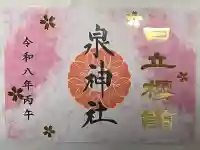 日立極詣
泉神社
令和八年丙午